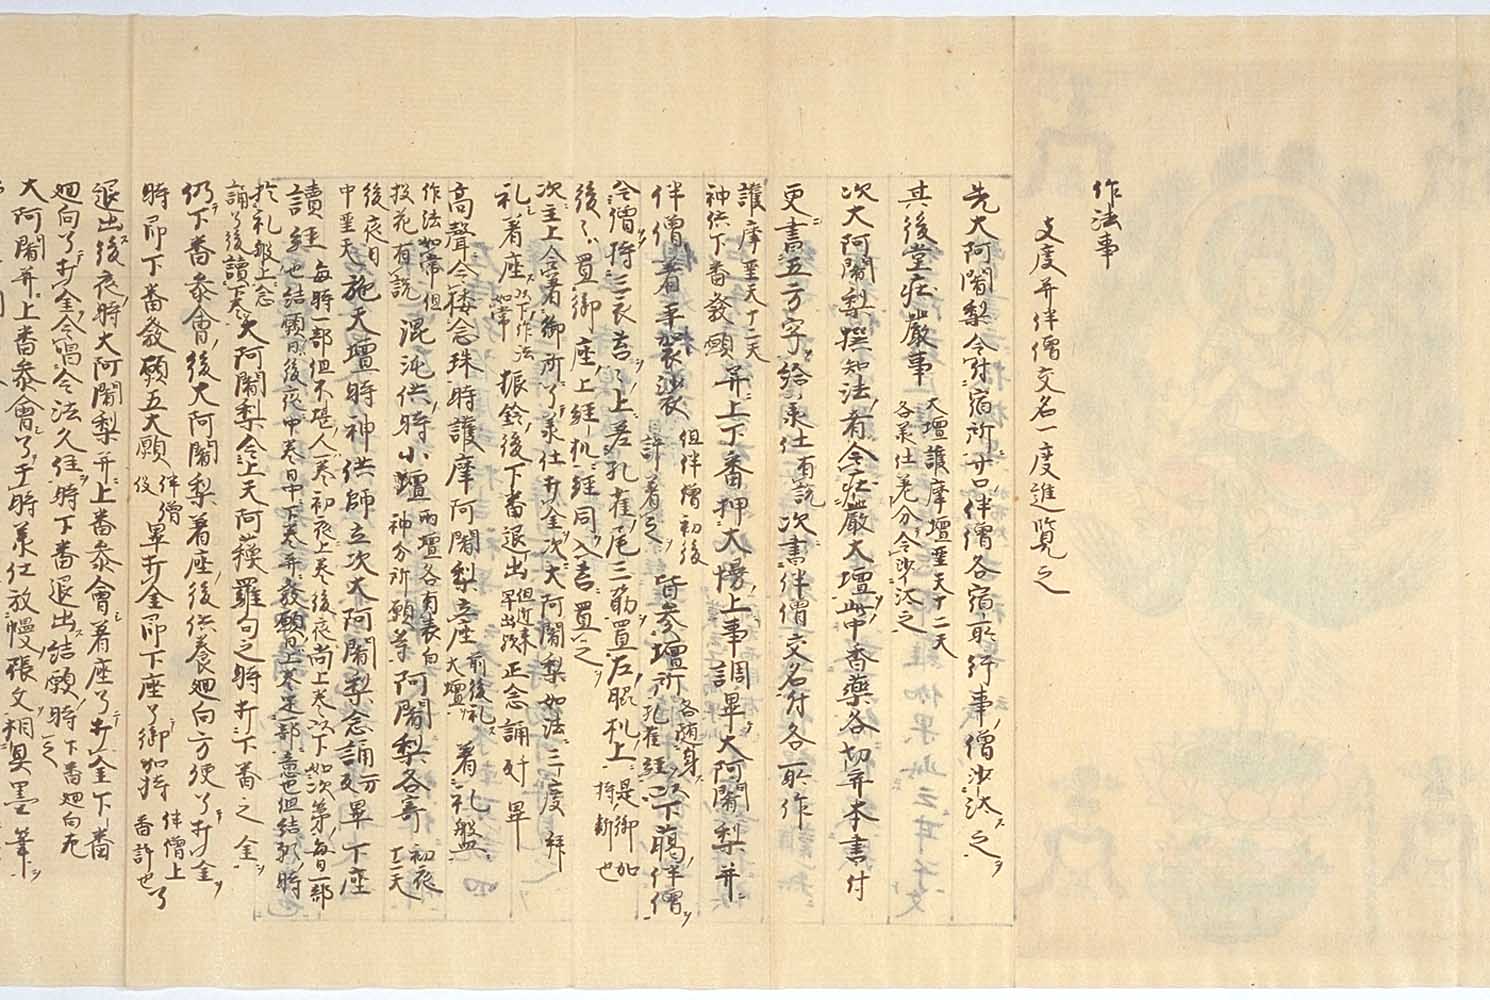 作法事
支度并伴僧交名一度進覧之
先大阿闍梨令付宿所廿口伴僧各宿取行事僧沙汰之
其後堂庄嚴事 大壇護摩壇聖天十二天 各承仕巻分令沙汰之
次大阿闍梨撰知法者令庄嚴大壇此中香藥各切并本書付
更書五方字給承仕有説次書伴僧交名付各取作
護摩聖天十二天 神供下番發願 并上下番押大慢上事調畢大阿闍梨并
伴僧著平袈裟 但伴僧初後 許著之 皆参壇所 各随身 孔雀經 以下﨟伴僧
令僧持三衣莒 上差孔雀尾三筋置左脇机上 是御加 持断也
後置御座上經机經同入莒置之
次主上令著御所了承仕打金次大阿闍梨如法三度拜
礼著座 以下作法 如常 振鈴後下番退出 但近来 早出歟 正念誦訖畢
高聲令後念珠時護摩阿闍梨立座 前後礼 大壇 著礼盤
作法如常但 投花有説 混沌供時小壇 兩壇各有表白 神分祈願等 阿闍梨各寄 初夜 十二天
後夜日 中聖天 施天壇時神供師立次大阿闍梨念誦可及畢下座
讀經也 毎時一部但不堪人一巻初夜上巻後夜尚上巻以下如次第毎日一部 結願日後夜中巻日中下巻并發願日上巻是一部意也但結願時
於礼盤上念 誦了後讀下巻 大阿闍梨令上天阿蘇羅句之時打下番之金
仍下番参會後大阿闍梨著座後供養廻向方便了打金
時即下番發願五大願 伴僧 役 畢打金即下座了御加持 伴僧上 番許也了
退出後夜時大阿闍梨并上番参會著座了打金下番
廻向了打金令唱令法久住時下番退出結願時 下番廻向无之
大阿闍并上番参會了于時承仕放幔張文桐具墨筆